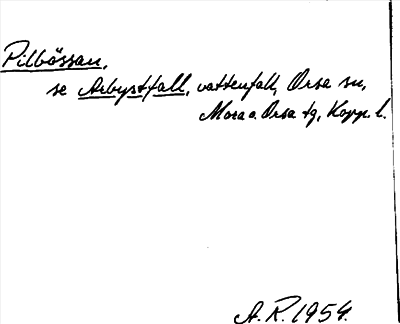 Pilbössan,
se Arbystfall, vattenfall, Orsa sn,
Mora o. Orsa tg, Kopp. l.
A. R. 1954.